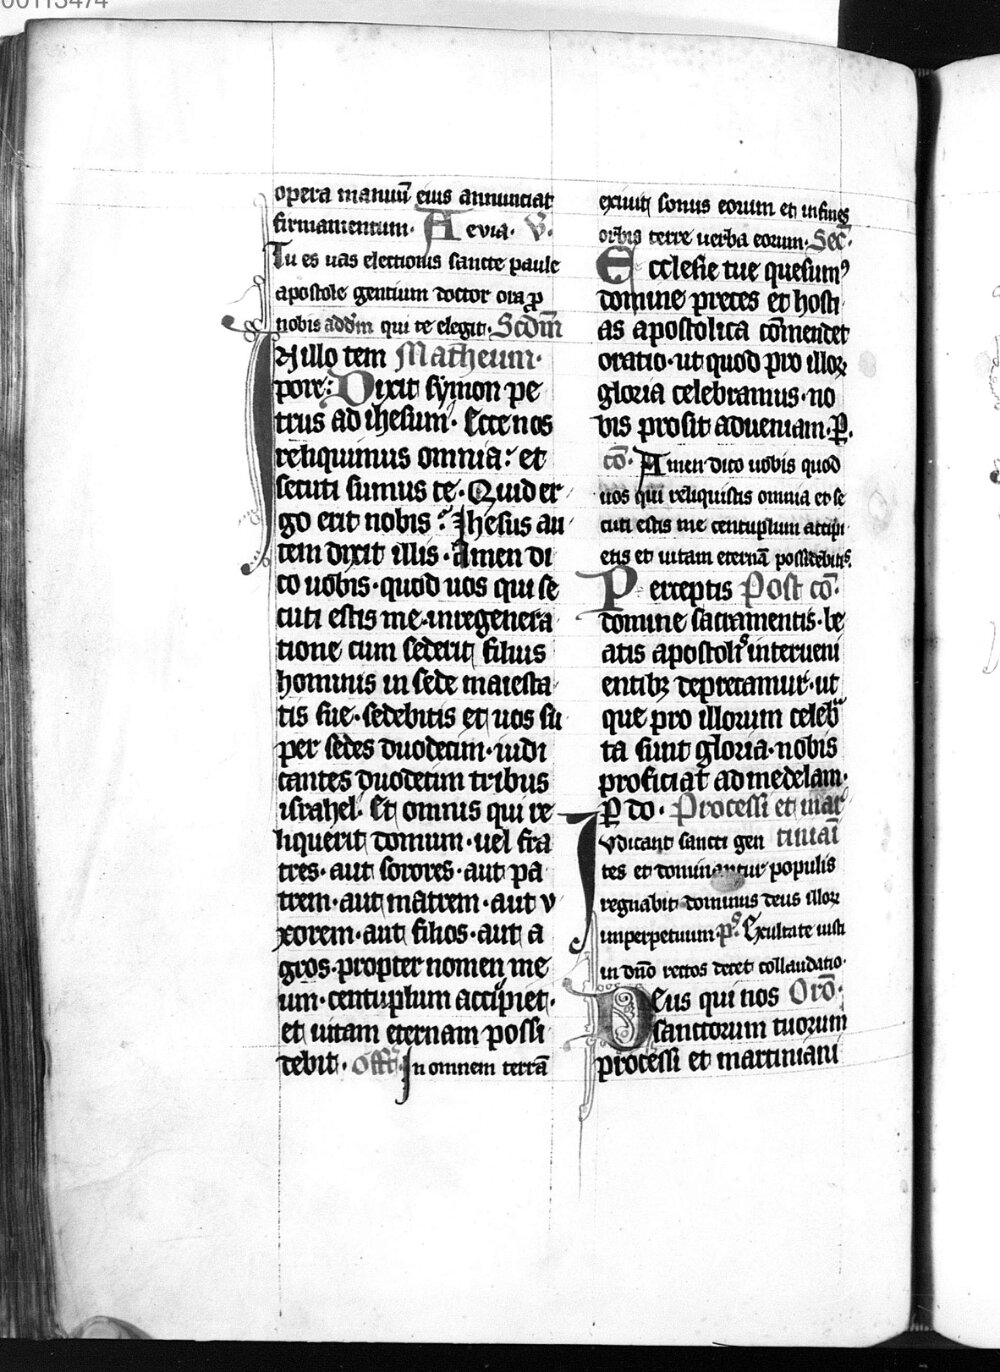 00113474
opera manuū eius annunciat
firmamentum. Aevia. V.
Tu es uas electionis sancte paule
apostole gentium doctor ora ꝓ
nobis addm̄ qui te elegit. Scdm̄
In illo tem Matheum.
pore: Dixit symon pe
trus ad ihesum. Ecce nos
reliquimus omnia: et
secuti sumus te. Quid er
go erit nobis? Ihesus au
tem dixit illis. Amen di
co uobis. quod uos qui se
cuti estis me. in regenera
tione cum sederit filius
hominis in sede maiesta
tis sue. sedebitis et uos su
per sedes duodecim. iudi
cantes duodecim tribus
israhel. Et omnis qui re
liquerit domum. uel fra
tres. aut sorores. aut pa
trem. aut matrem. aut v
xorem. aut filios. aut a
gros. propter nomen me
um. centuplum accipiet.
et uitam eternam possi
debit. Offr̄ In omnem terrā
exiuit sonus eorum et in fines
orbis terre uerba eorum. Sec̄.
Ecclesie tue quesumꝰ
domine preces et hosti
as apostolica cōmendet
oratio. ut quod pro illoꝝ
gloria celebramus. no
bis prosit ad ueniam. P.
cō. Amen dico uobis quod
uos qui reliquistis omnia et se
cuti estis me centuplum accipi
etis et uitam eternā possidebitis.
Perceptis Post cō.
domine sacramentis. be
atis apostolis interueni
entibꝫ deprecamur. ut
que pro illorum celebra
ta sunt gloria. nobis
proficiat ad medelam.
P do. Processi et mar
Iudicant sancti gen tiniani
tes et dominantur populis
regnabit dominus deus illoꝝ
imperpetuum. ps. Exultate iusti
in dn̄o rectos decet collaudatio.
Deus qui nos Orō.
sanctorum tuorum
processi et martiniani